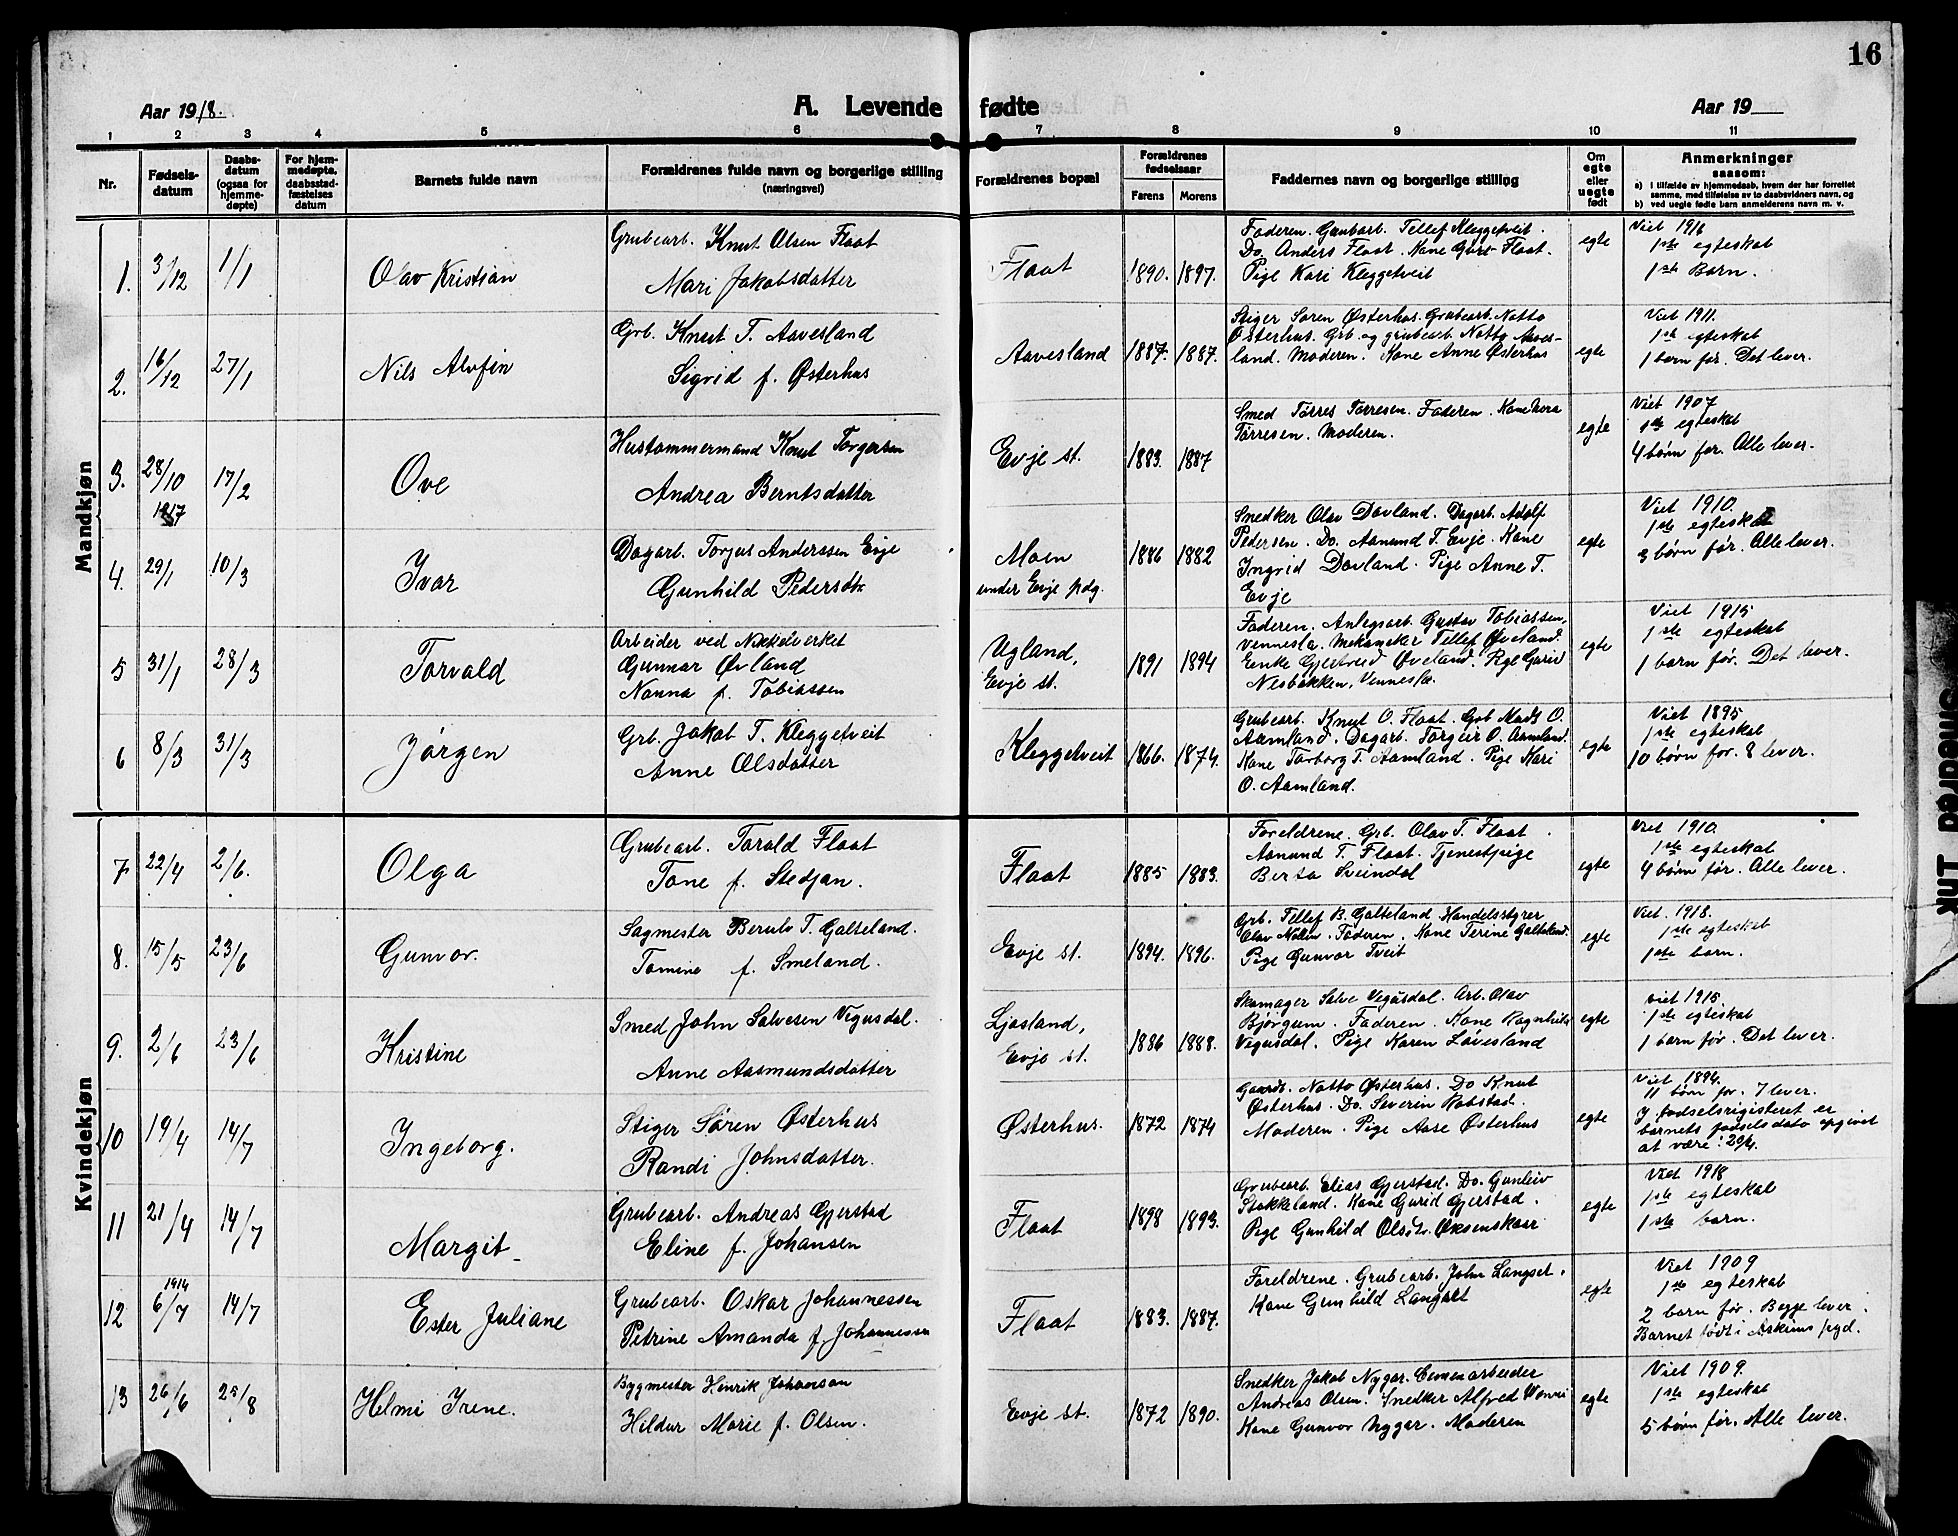 16
Aar 1918.
A. Levende fødte
Aar 19
1 2 3 4 5 6 7 8 9 10 11
Nr.
Fødsels-
datum
Daabs-
datum
(ogsaa for
hjemme-
døpte)
For hjem-
medøpte,
daabsstad-
fæstelses
datum
Barnets fulde navn
Forældrenes fulde navn og borgerlige stilling
(næringsvei)
Forældrenes bopæl
Forældrenes
fødselsaar
Farens Morens
Faddernes navn og borgerlige stilling
Om
egte
eller
uegte
født
Anmerkninger
saasom:
a) I tilfælde av hjemmedaab, hvem der har forrettet
samme, med tilføielse av to daabsvidners navn, og
b) ved uegte fødte barn anmelderens navn m. v.
Mandkjøn
1. 31/12 1/1 Olav Kristian
Grubearb. Knut Olsen Flaat
Mari Jakobsdatter
Flaat 1890. 1897.
Faderen. Grubearb. Tellef Kleggetveit.
Do. Anders Flaat. Kone Guro Flaat.
Pige Kari Kleggetveit
egte
Viet 1916
1ste egteskab
1ste Barn.
2. 16/12 27/1 Nils Alvfin
Grb. Knut T. Aavesland
Sigrid f. Østerhus
Aavesland 1887. 1887.
Stiger Søren Østerhus. Grubearb. Notto
Østerhus. Grb. og grubearb. Notto Aaves-
land. Moderen. Kone Anne Østerhus
egte
Viet 1911.
1ste egteskab
1 barn før. Det lever.
3. 28/10 1917 17/2 Ove
Hustømmermand Knut Torgersen
Andrea Berntsdatter
Evje st. 1883. 1887
Smed Tørres Tørresen. Faderen. Kone Nora
Tørresen. Moderen.
egte
Viet 1907
1ste egteskab
4 børn før. Alle lever.
4. 29/1 10/3 Ivar
Dagarb. Torjus Anderssen Evje
Gunhild Pedersdtr.
Moen
under Evje pdg.
1886 1882
Snedker Olav Dovland. Dagarb. Adolf
Pedersen. Do. Aanund T. Evje. Kone
Ingrid Dovland. Pige Anne T.
Evje
egte
Viet 1910.
1ste egteskab
3 børn før. Alle lever.
5 31/1 28/3 Torvald
Arbeider ved Nikkelverket
Gunnar Øvland
Nanna f. Tobiassen
Ugland,
Evje st.
1891 1894
Faderen. Anlegsarb. Gustav Tobiassen,
Vennesla. Mekaniker Tellef Øveland.
Enke Gjertrud Øveland. Pige Gurid
Nesbakken, Vennesla.
egte
Viet 1915
1ste egteskab
1 barn før. Det lever.
6 8/3 31/3 Jørgen
Grb. Jakob T. Kleggetveit
Anne Olsdatter
Kleggetveit 1866. 1874.
Grubearb. Knut O. Flaat. Grb Mads O.
Aamland. Dagarb. Torgeir O. Aamland.
Kone Torborg T. Aamland. Pige Kari
O. Aamland.
egte
Viet 1895
1ste egteskab
10 børn før. 8 lever.
Kvindekjøn
7 22/4 2/6. Olga
Grubearb. Torald Flaat
Tone f. Stedjan.
Flaat 1885 1883.
Foreldrene. Grb. Olav T. Flaat.
Aanund T. Flaat. Tjenestpige
Berta Sveindal
egte
Viet 1910.
1ste egteskab
4 børn før. Alle lever.
8. 15/5 23/6 Gunvor.
Sagmester Berulv T. Galteland.
Tomine f. Smeland.
Evje st. 1894. 1896.
Grb. Tellef B. Galteland. Handelsstyrer
Olav Faderen. Kone Terine Galteland.
Pige Gunvor Tveit
egte
Viet. 1918.
1ste egteskab
1ste barn.
9. 2/6 23/6 Kristine
Smed John Salvesen Vegusdal.
Anne Aasmundsdatter
Ljosland,
Evje st.
1886 1888.
Skomager Salve Vegusdal. Arb. Olav
Bjørgum. Faderen. Kone Ragnhild
Vegusdal. Pige Karen Løvesland
egte
Viet 1915
1ste egteskab
1 barn før. Det lever.
10 19/4 14/7 Ingeborg.
Stiger Søren Østerhus
Randi Johnsdatter.
Østerhus. 1872 1874
Gaardb. Notto Østerhus. Do Knut
Østerhus. Do. Severin Robstad.
Moderen. Pige Aase Østerhus
egte
Viet 1894.
11 børn før. 7 lever.
I fødselsregisteret er
barnets fødselsdato opgivet
at være: 20/4.
11 21/4 14/7 Margit
Grubearb. Andreas Gjerstad
Eline f. Johansen
Flaat 1898 1893.
Grubearb Elias Gjerstad. Do. Gunleiv
Stokkeland. Kone Gurid Gjerstad.
Pige Gunhild Olsdtr. Oksenskaar
egte
Viet 1918
1ste egteskab
1ste barn.
12 6/7 1914 14/7 Ester Juliane
Grubearb. Oskar Johannessen
Petrine Amanda f. Johannessen
Flaat 1883. 1887.
Foreldrene. Grubearb. John Langset.
Kone Gunhild Langset
egte
Viet 1909
1ste egteskab
2 barn før. Begge lever.
Barnet født i Askims pgd.
13 26/6 25/8 Helmi Irene.
Bygmester Henrik Johanson
Hildur Marie f. Olsen.
Evje st. 1872 1890.
Snedker Jakob Nygar. Cementarbeider
Andreas Olsen. Snedker Alfred
Kone Gunvor Nygar. Moderen
egte
Viet 1909.
1ste egteskab
5 børn før. Alle lever.